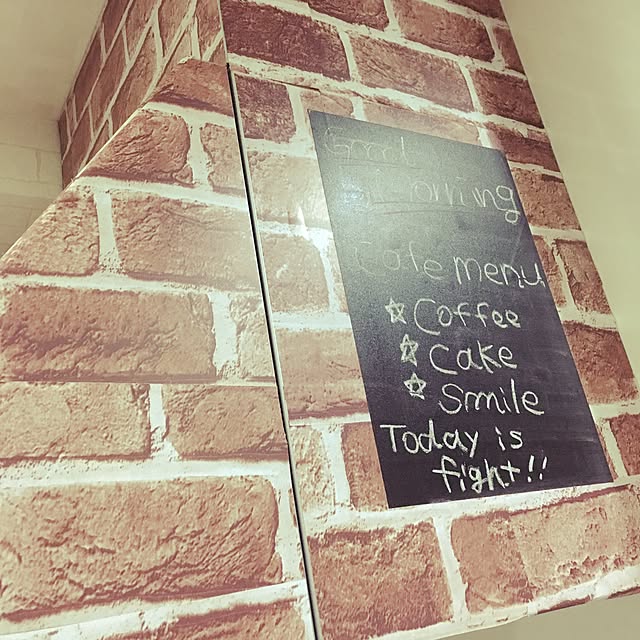 Good
morning
Cafe menu
☆ Coffee
☆ Cake
☆ Smile
Today is
fight!!